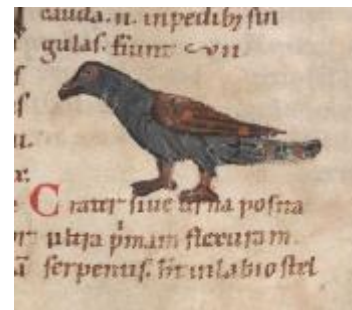 cauda. ii. in pedib; sin
gulas. fiunt vii
Crater siue urna posita
ultra p̄mam flexuram
serpentis. h̄t in labio stel